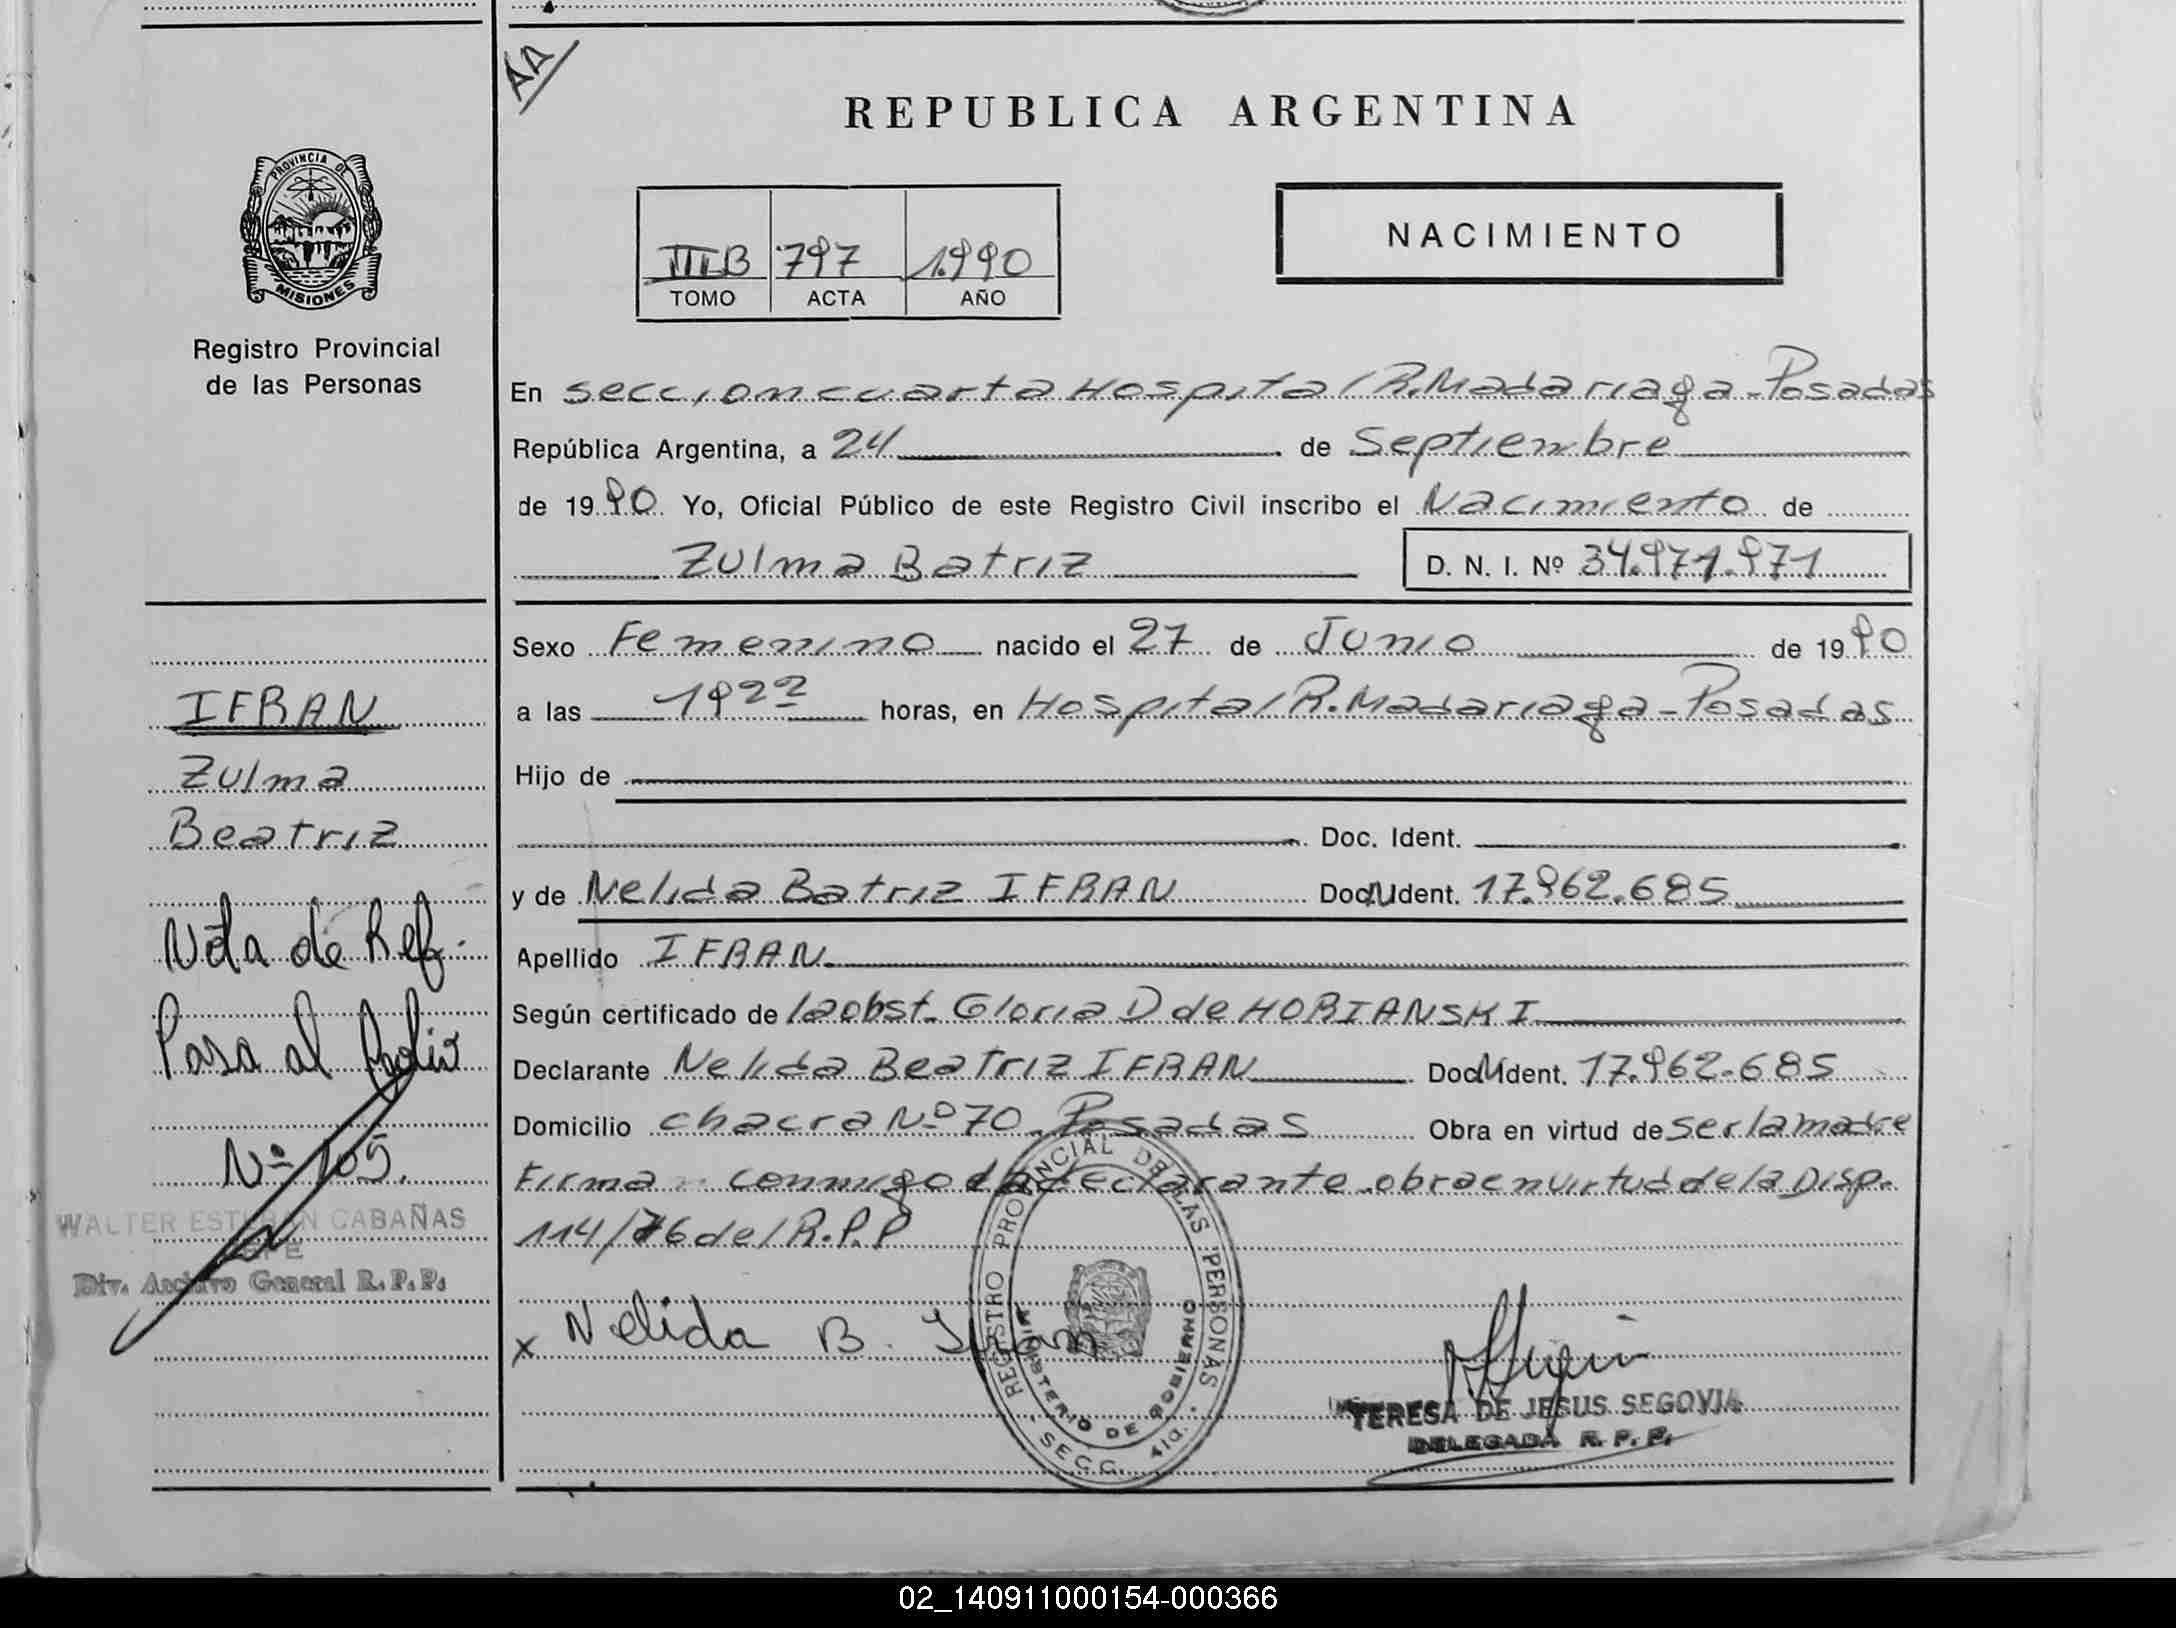 AA
REPUBLICA ARGENTINA
PROVINCIA DE
MISIONES
Registro Provincial
de las Personas
IIIB 797 1.990
TOMO ACTA AÑO
NACIMIENTO
En seccion cuarta Hospital R. Madariaga - Posadas
República Argentina, a 24 de Septiembre
de 1990 Yo, Oficial Público de este Registro Civil inscribo el Nacimiento de
Zulma Batriz D. N. I. Nº 34.971.971
Sexo Femenino nacido el 27 de Junio de 1990
a las 1922 horas, en Hospital R. Madariaga - Posadas
Hijo de
Doc. Ident.
y de Nelida Batriz IFRAN Doc. Ident. 17.962.685
Apellido IFRAN
Según certificado de la obst. Gloria D de HORIANSKI
Declarante Nelida Beatriz IFRAN Doc. Ident. 17.962.685
Domicilio chacra Nº 70 - Posadas Obra en virtud de ser la madre
Firma conmigo la declarante obra en virtud de la Disp.
114/76 del R.P.P
x Nelida B. Ifran
REGISTRO PROVINCIAL DE LAS PERSONAS
MINISTERIO DE GOBIERNO
SECC. 4ta.
TERESA DE JESUS SEGOVIA
DELEGADA R. P. P.
IFRAN
Zulma
Beatriz
Nota de Ref.
Pasa al Folio
Nº 105.
WALTER ESTEBAN CABAÑAS
JEFE
Div. Archivo General R.P.P.
02_140911000154-000366